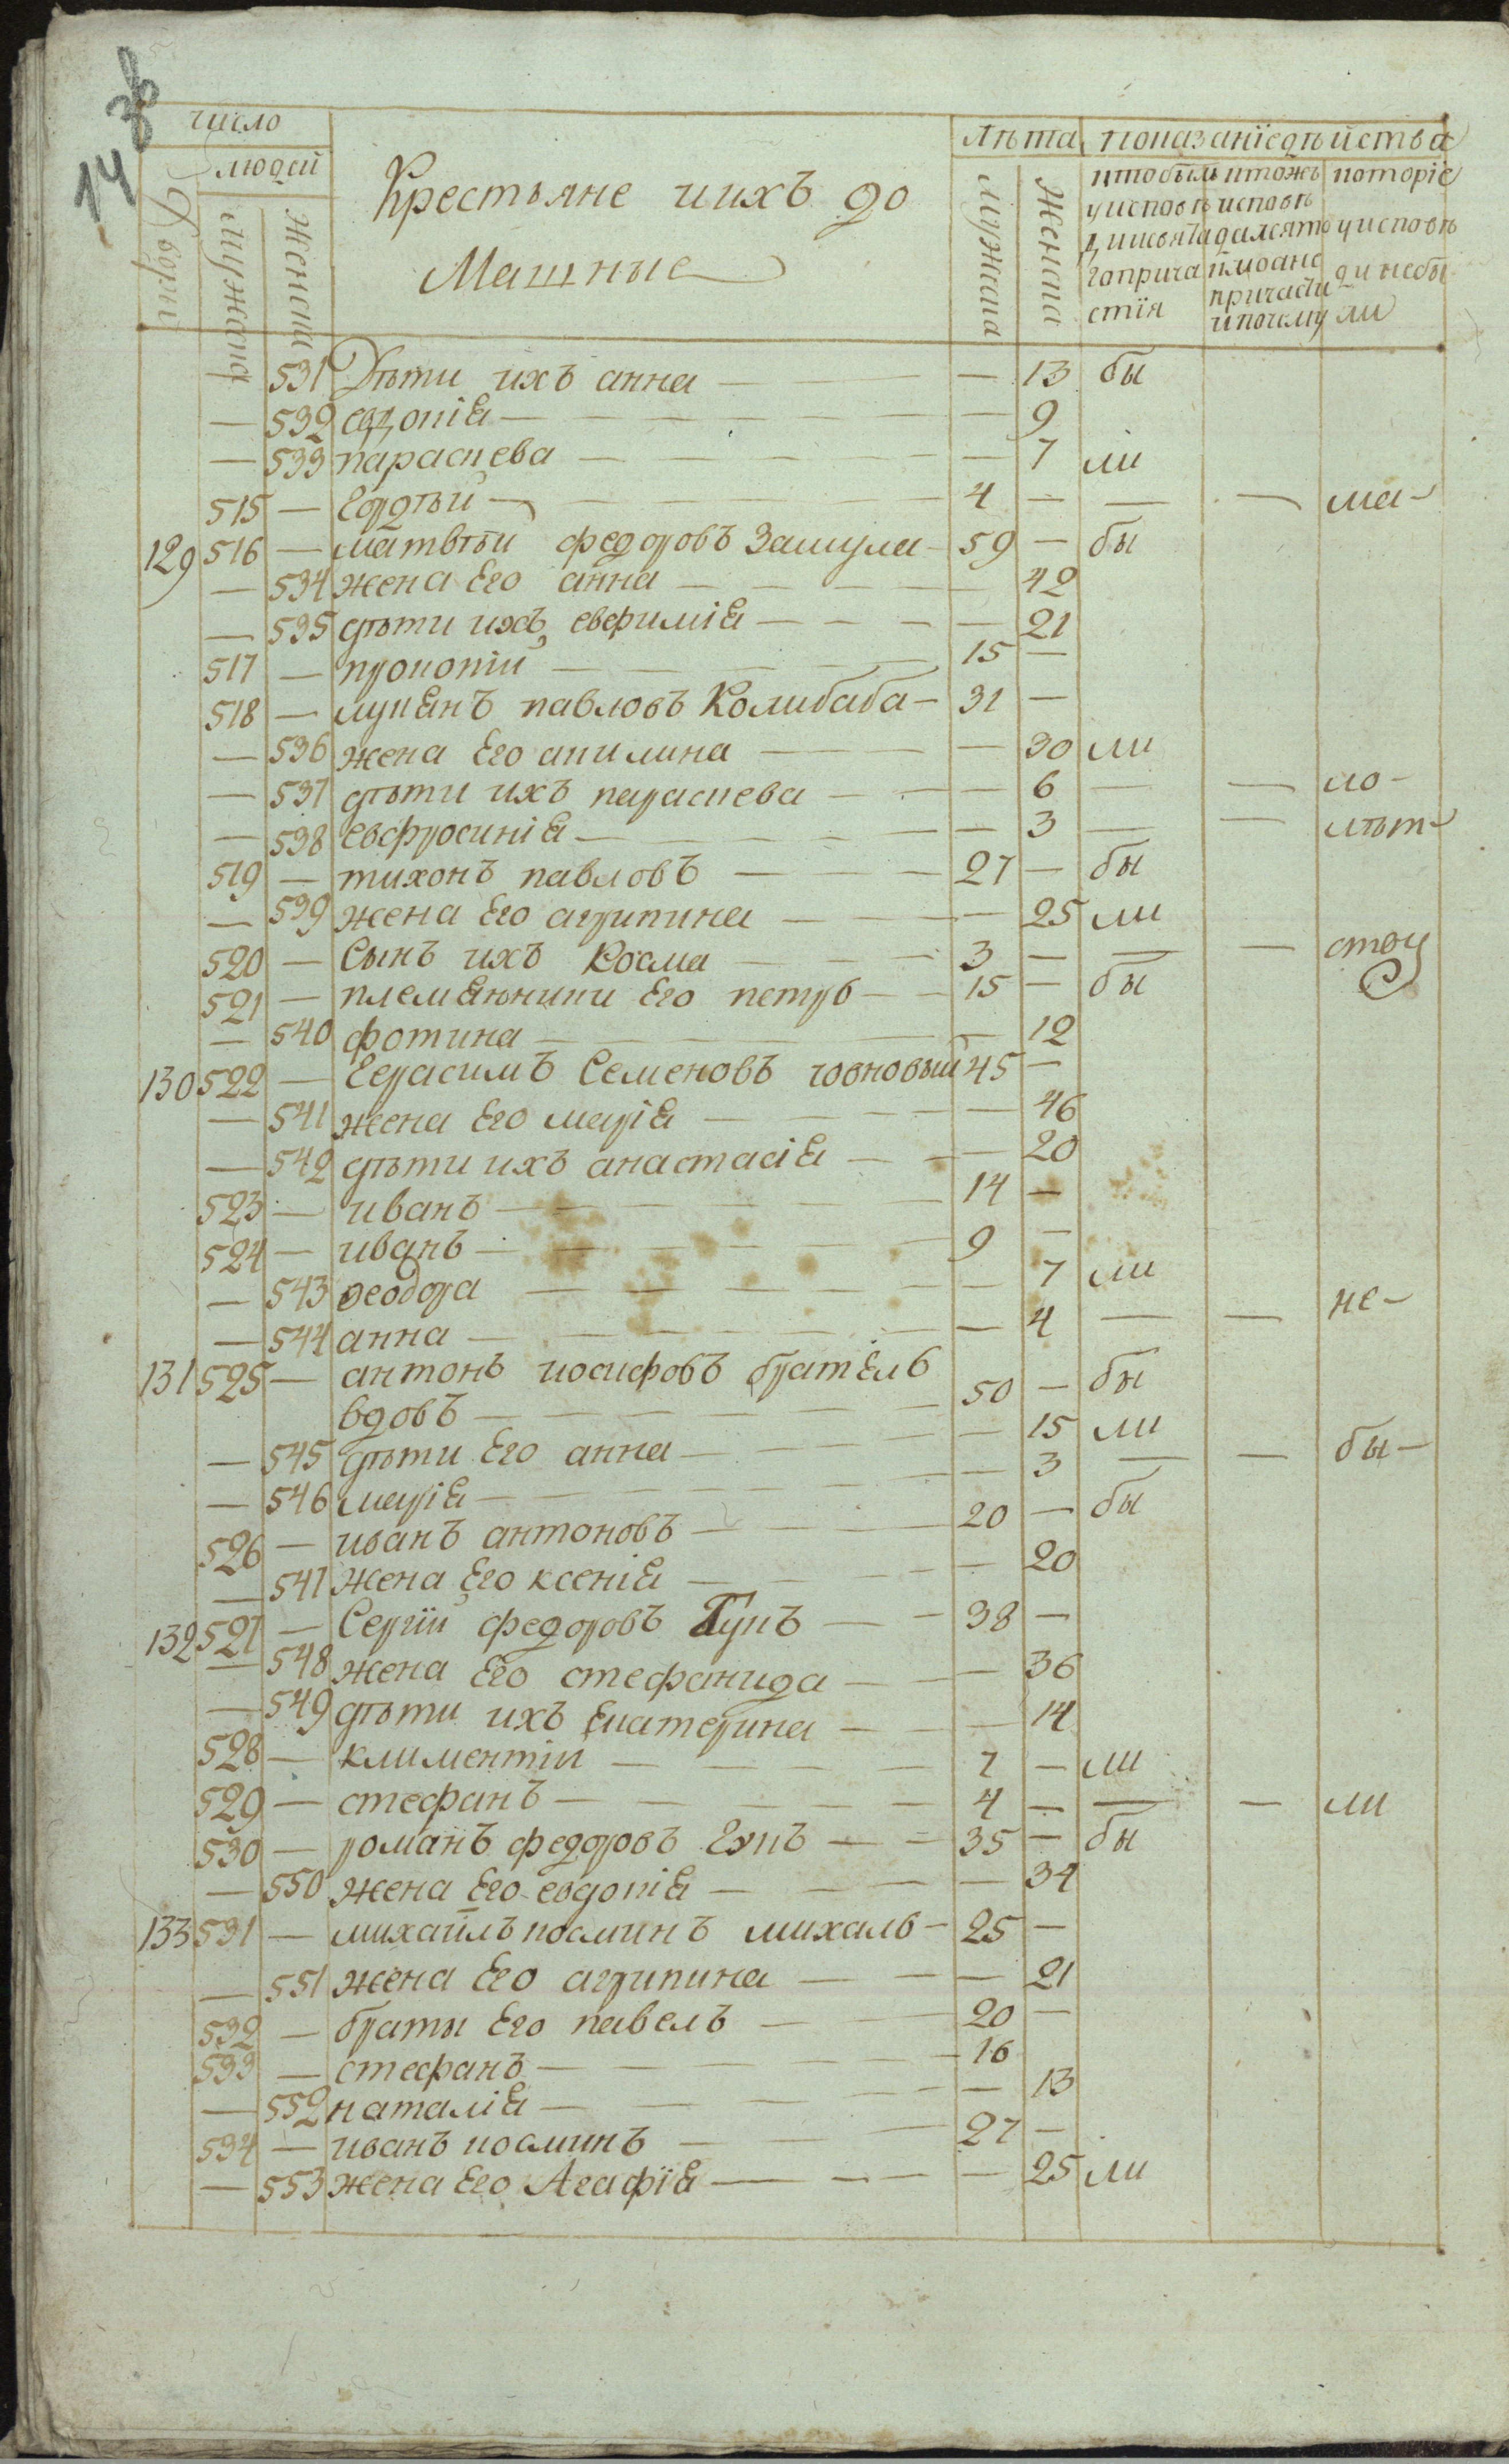 38
14
число
людей
дворы
мужеска
женска
Крестьяне и ихъ до
машные
Лѣта
мужеска
женска
показаніе дѣйства
кто былъ
у исповѣ
ди и свята
го прича
стія
кто жъ
исповѣ
дался а то
кмо а не
причасти
и почему
которіе
у исповѣ
ди не бы
ли
531 Дѣти ихъ анна — — 13 бы
— 532 евдокіѧ — — 9
— 533 параскева — — 7 ли
515 — Ѳеодтъй — 4 — — — ма-
129 516 — матвѣй федоровъ Зашула 59 — бы
— 534 жена Его анна — — 42
— 535 дѣти ихъ евфиміѧ — — 21
517 — прокопій — 15 —
518 — лукѧнъ павловъ Колибаба — 31 —
— 536 жена Его акилина — — 30 ли
— 537 дѣти ихъ параскева — — 6 — — ло-
— 538 евфросиніѧ — — 3 — — лѣт-
519 — тихонъ павловъ — 27 — бы
— 539 жена Его агрипина — — 25 ли
520 — Сынъ ихъ Косма — 3 — — — ству
521 — племѧнники Его петръ — 15 — бы
— 540 фотина — — 12
130 522 — Герасимъ Семеновъ човновый 45 —
— 541 жена Его маріѧ — — 46
— 542 дѣти ихъ анастасіѧ — — 20
523 — иванъ — 14 —
524 — иванъ — 9 —
— 543 ѳеодора — — 7 ли
— 544 анна — — 4 — — не-
131 525 — антонъ иосифовъ братѧль
вдовъ — 50 — бы
— 545 дѣти Его анна — — 15 ли
— 546 маріѧ — — 3 — — бы-
526 — иванъ антоновъ — 20 — бы
— 547 жена Его ксеніѧ — — 20
132 527 — Сергій федоровъ Гукъ — 38 —
— 548 жена Его стефанида — — 36
— 549 дѣти ихъ Екатерина — — 14
528 — климентій — 7 — ли
529 — стефанъ — 4 — — — ли
530 — романъ федоровъ Гукъ — 35 — бы
— 550 жена Его евдокіѧ — — 34
133 531 — михаилъ косминъ михаль — 25 —
— 551 жена Его агрипина — — 21
532 — браты Его павелъ — 20 —
533 — стефанъ — 16
— 552 наталіѧ — — 13
534 — иванъ косминъ — 27 —
— 553 жена Его Агафіѧ — — 25 ли